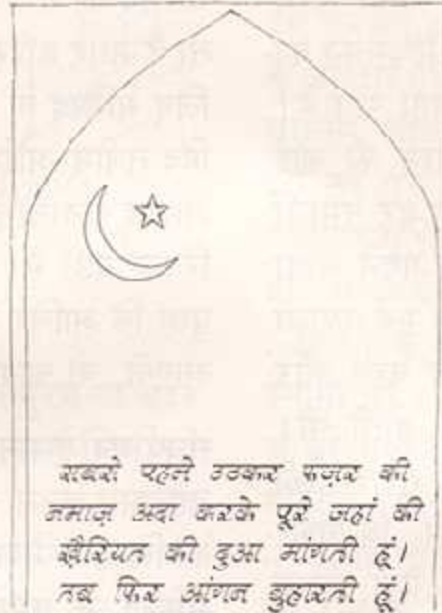 सबसे पहले उठकर फज़र की
नमाज़ अदा करके पूरे जहां की
ख़ैरियत की दुआ मांगती हूं।
तब फिर आंगन बुहारती हूं।